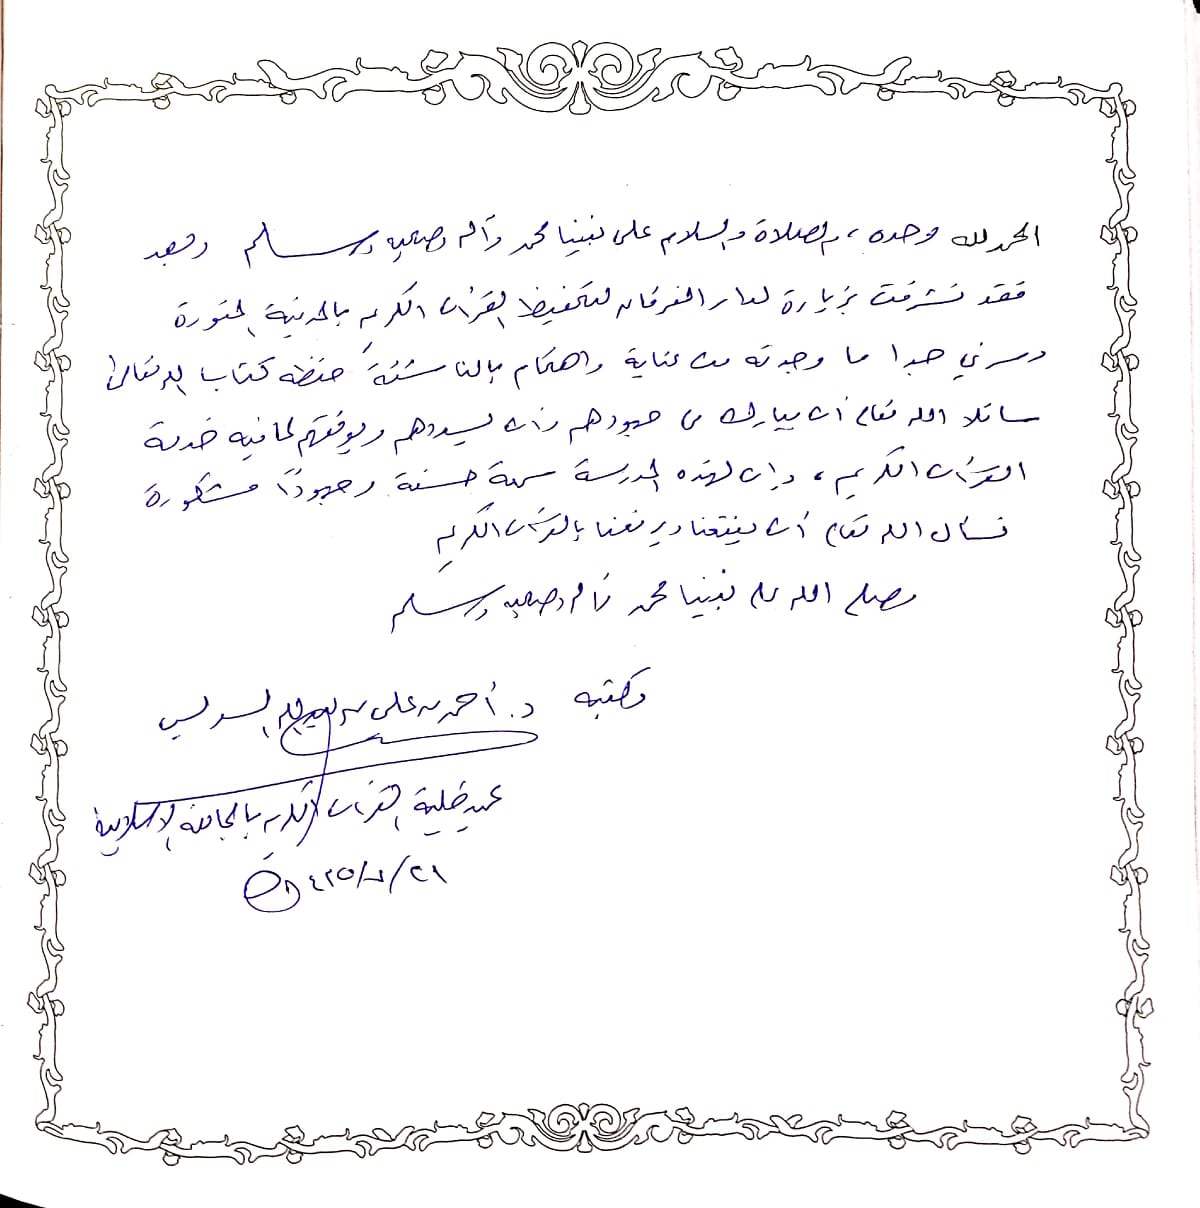 الحمد لله وحده، والصلاة والسلام على نبينا محمد وآله وصحبه وسلم وبعد
فقد تشرفت بزيارة لدار الفرقان لتحفيظ القرآن الكريم بالمدينة المنورة
وسرني جدا ما وجدته من عناية واهتمام بالناشئة حفظة كتاب الله تعالى
سائلا الله تعالى أن يبارك في جهودهم وأن يسددهم ويوفقهم لما فيه خدمة
القرآن الكريم، وإن لهذه المدرسة سمعة حسنة وجهودًا مشكورة
نسأل الله تعالى أن ينفعنا ويرفعنا بالقرآن الكريم
وصلى الله على نبينا محمد وآله وصحبه وسلم
وكتبه د. أحمد بن علي بن السديس
عميد كلية القرآن الكريم بالجامعة الإسلامية